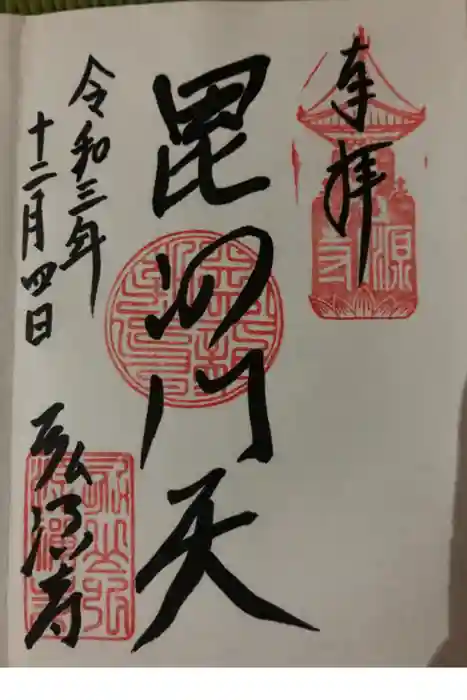 奉拝
毘沙門天
令和三年
十二月四日
弘源寺